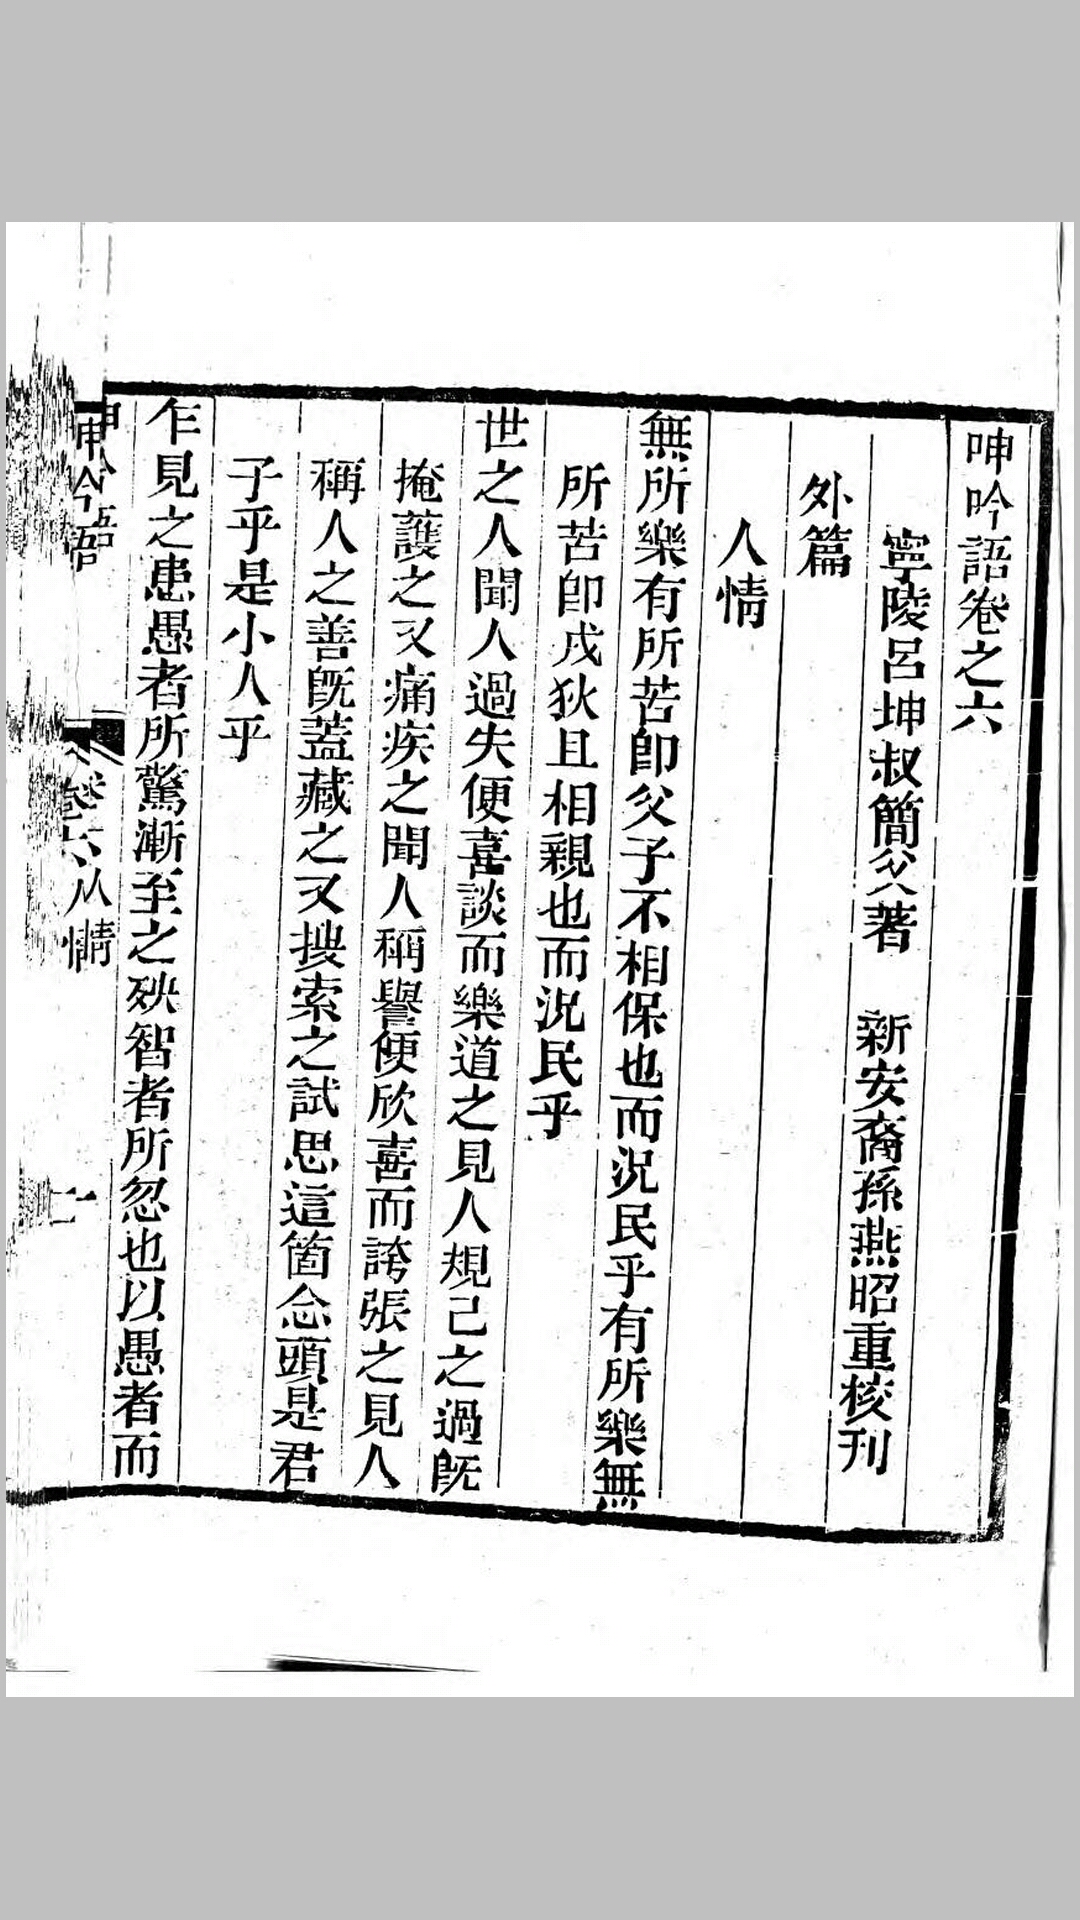 呻吟語卷之六
寧陵呂坤叔簡父著　新安裔孫燕昭重校刊
外篇
人情
無所樂有所苦卽父子不相保也而況民乎有所樂無
所苦卽戎狄且相親也而況民乎
世之人聞人過失便喜談而樂道之見人規己之過旣
掩護之又痛疾之聞人稱譽便欣喜而誇張之見人
稱人之善旣蓋藏之又搜索之試思這箇念頭是君
子乎是小人乎
乍見之患愚者所驚漸至之殃智者所忽也以愚者而
呻吟語
卷六 人情
一